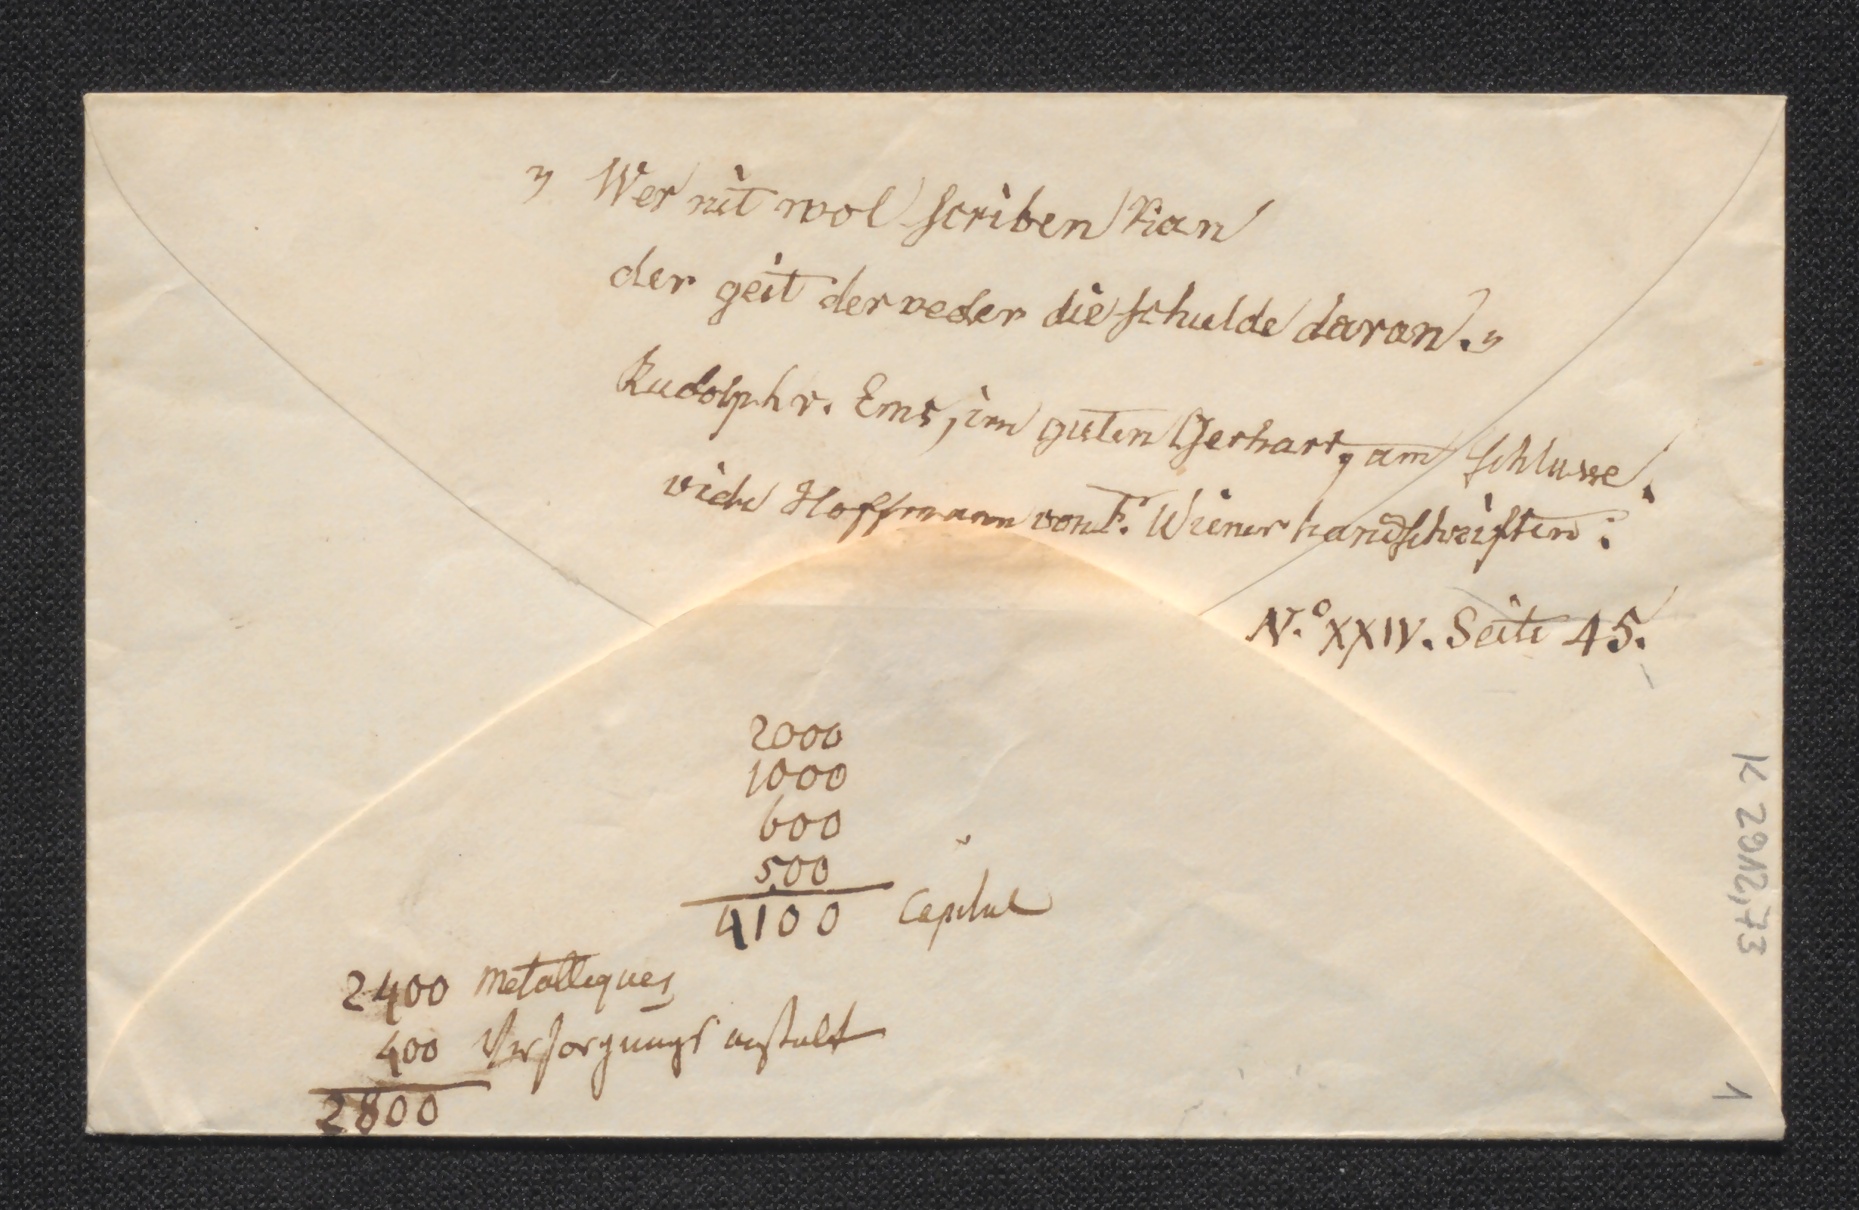 „ Wer nit wol scriben kan
der geit der veder die schulde daran.“
Rudolph v. Ems, im guten Gerhart, am schlusse.
vide Hoffmann von F. Wiener handschriften:
N.o XXIV. Seite 45.
2000
1000
600
500
4100 Capital
2400 Metalliques
400 Versorgungs anstalt
2800
K 2912,73
1